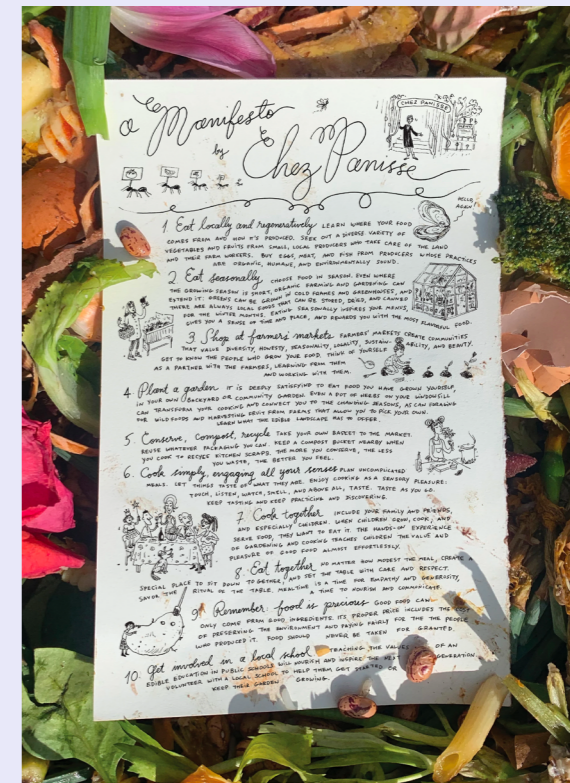 a Manifesto
by Chez Panisse
CHEZ PANISSE
HELLO, AGAIN
1. Eat locally and regeneratively LEARN WHERE YOUR FOOD
COMES FROM AND HOW IT'S PRODUCED. SEEK OUT A DIVERSE VARIETY OF
VEGETABLES AND FRUITS FROM SMALL, LOCAL PRODUCERS WHO TAKE CARE OF THE LAND
AND THEIR FARM WORKERS. BUY EGGS, MEAT, AND FISH FROM PRODUCERS WHOSE PRACTICES
ARE ORGANIC, HUMANE, AND ENVIRONMENTALLY SOUND.
2. Eat seasonally CHOOSE FOOD IN SEASON. EVEN WHERE
THE GROWING SEASON IS SHORT, ORGANIC FARMING AND GARDENING CAN
EXTEND IT: GREENS CAN BE GROWN IN COLD FRAMES AND GREENHOUSES, AND
THERE ARE ALWAYS LOCAL FOODS THAT CAN BE STORED, DRIED, AND CANNED
FOR THE WINTER MONTHS. EATING SEASONALLY INSPIRES YOUR MENUS,
GIVES YOU A SENSE OF TIME AND PLACE, AND REWARDS YOU WITH THE MOST FLAVORFUL FOOD.
3. Shop at farmers markets FARMERS' MARKETS CREATE COMMUNITIES
THAT VALUE DIVERSITY, HONESTY, SEASONALITY, LOCALITY, SUSTAIN-ABILITY, AND BEAUTY.
GET TO KNOW THE PEOPLE WHO GROW YOUR FOOD. THINK OF YOURSELF
AS A PARTNER WITH THE FARMERS, LEARNING FROM THEM
AND WORKING WITH THEM.
4. Plant a garden IT IS DEEPLY SATISFYING TO EAT FOOD YOU HAVE GROWN YOURSELF,
IN YOUR OWN BACKYARD OR COMMUNITY GARDEN. EVEN A POT OF HERBS ON YOUR WINDOWSILL
CAN TRANSFORM YOUR COOKING AND CONNECT YOU TO THE CHANGING SEASONS, AS CAN FORAGING
THE WILD FOODS AND HARVESTING FRUIT FROM FARMS THAT ALLOW YOU TO PICK YOUR OWN.
LEARN WHAT THE EDIBLE LANDSCAPE HAS TO OFFER.
5. Conserve, Compost, recycle TAKE YOUR OWN BASKET TO THE MARKET.
REUSE WHATEVER PACKAGING YOU CAN. KEEP A COMPOST BUCKET NEARBY WHEN
YOU COOK TO RECYCLE KITCHEN SCRAPS. THE MORE YOU CONSERVE, THE LESS
YOU WASTE, THE BETTER YOU FEEL.
6. Cook simply, engaging all your senses PLAN UNCOMPLICATED
MEALS. LET THINGS TASTE OF WHAT THEY ARE. ENJOY COOKING AS A SENSORY PLEASURE:
TOUCH, LISTEN, WATCH, SMELL, AND ABOVE ALL, TASTE. TASTE AS YOU GO.
KEEP TASTING AND KEEP PRACTICING AND DISCOVERING.
7. Cook together INCLUDE YOUR FAMILY AND FRIENDS,
AND ESPECIALLY CHILDREN. WHEN CHILDREN GROW, COOK, AND
SERVE FOOD, THEY WANT TO EAT IT. THE HANDS-ON EXPERIENCE
OF GARDENING AND COOKING TEACHES CHILDREN THE VALUE AND
PLEASURE OF GOOD FOOD ALMOST EFFORTLESSLY.
8. Eat together NO MATTER HOW MODEST THE MEAL, CREATE A
SPECIAL PLACE TO SIT DOWN TOGETHER, AND SET THE TABLE WITH CARE AND RESPECT.
SAVOR THE RITUAL OF THE TABLE. MEALTIME IS A TIME FOR EMPATHY AND GENEROSITY,
A TIME TO NOURISH AND COMMUNICATE.
9. Remember: food is precious GOOD FOOD CAN
ONLY COME FROM GOOD INGREDIENTS. ITS PROPER PRICE INCLUDES THE COST
OF PRESERVING THE ENVIRONMENT AND PAYING FAIRLY FOR THE THE PEOPLE
WHO PRODUCED IT. FOOD SHOULD NEVER BE TAKEN FOR GRANTED.
10. Get involved in a local school TEACHING THE VALUES OF AN
EDIBLE EDUCATION IN PUBLIC SCHOOLS WILL NOURISH AND INSPIRE THE NEXT GENERATION.
VOLUNTEER WITH A LOCAL SCHOOL TO HELP THEM GET STARTED OR
KEEP THEIR GARDEN GROWING.